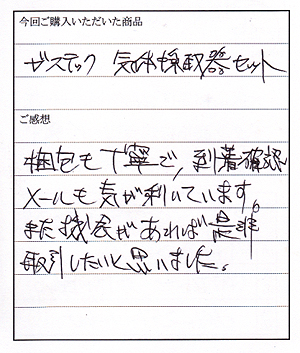 今回ご購入いただいた商品
ガステック 気体採取器セット
ご感想
梱包も丁寧で、到着確認
メールも気が利いています。
また機会があれば是非
取引したいと思いました。